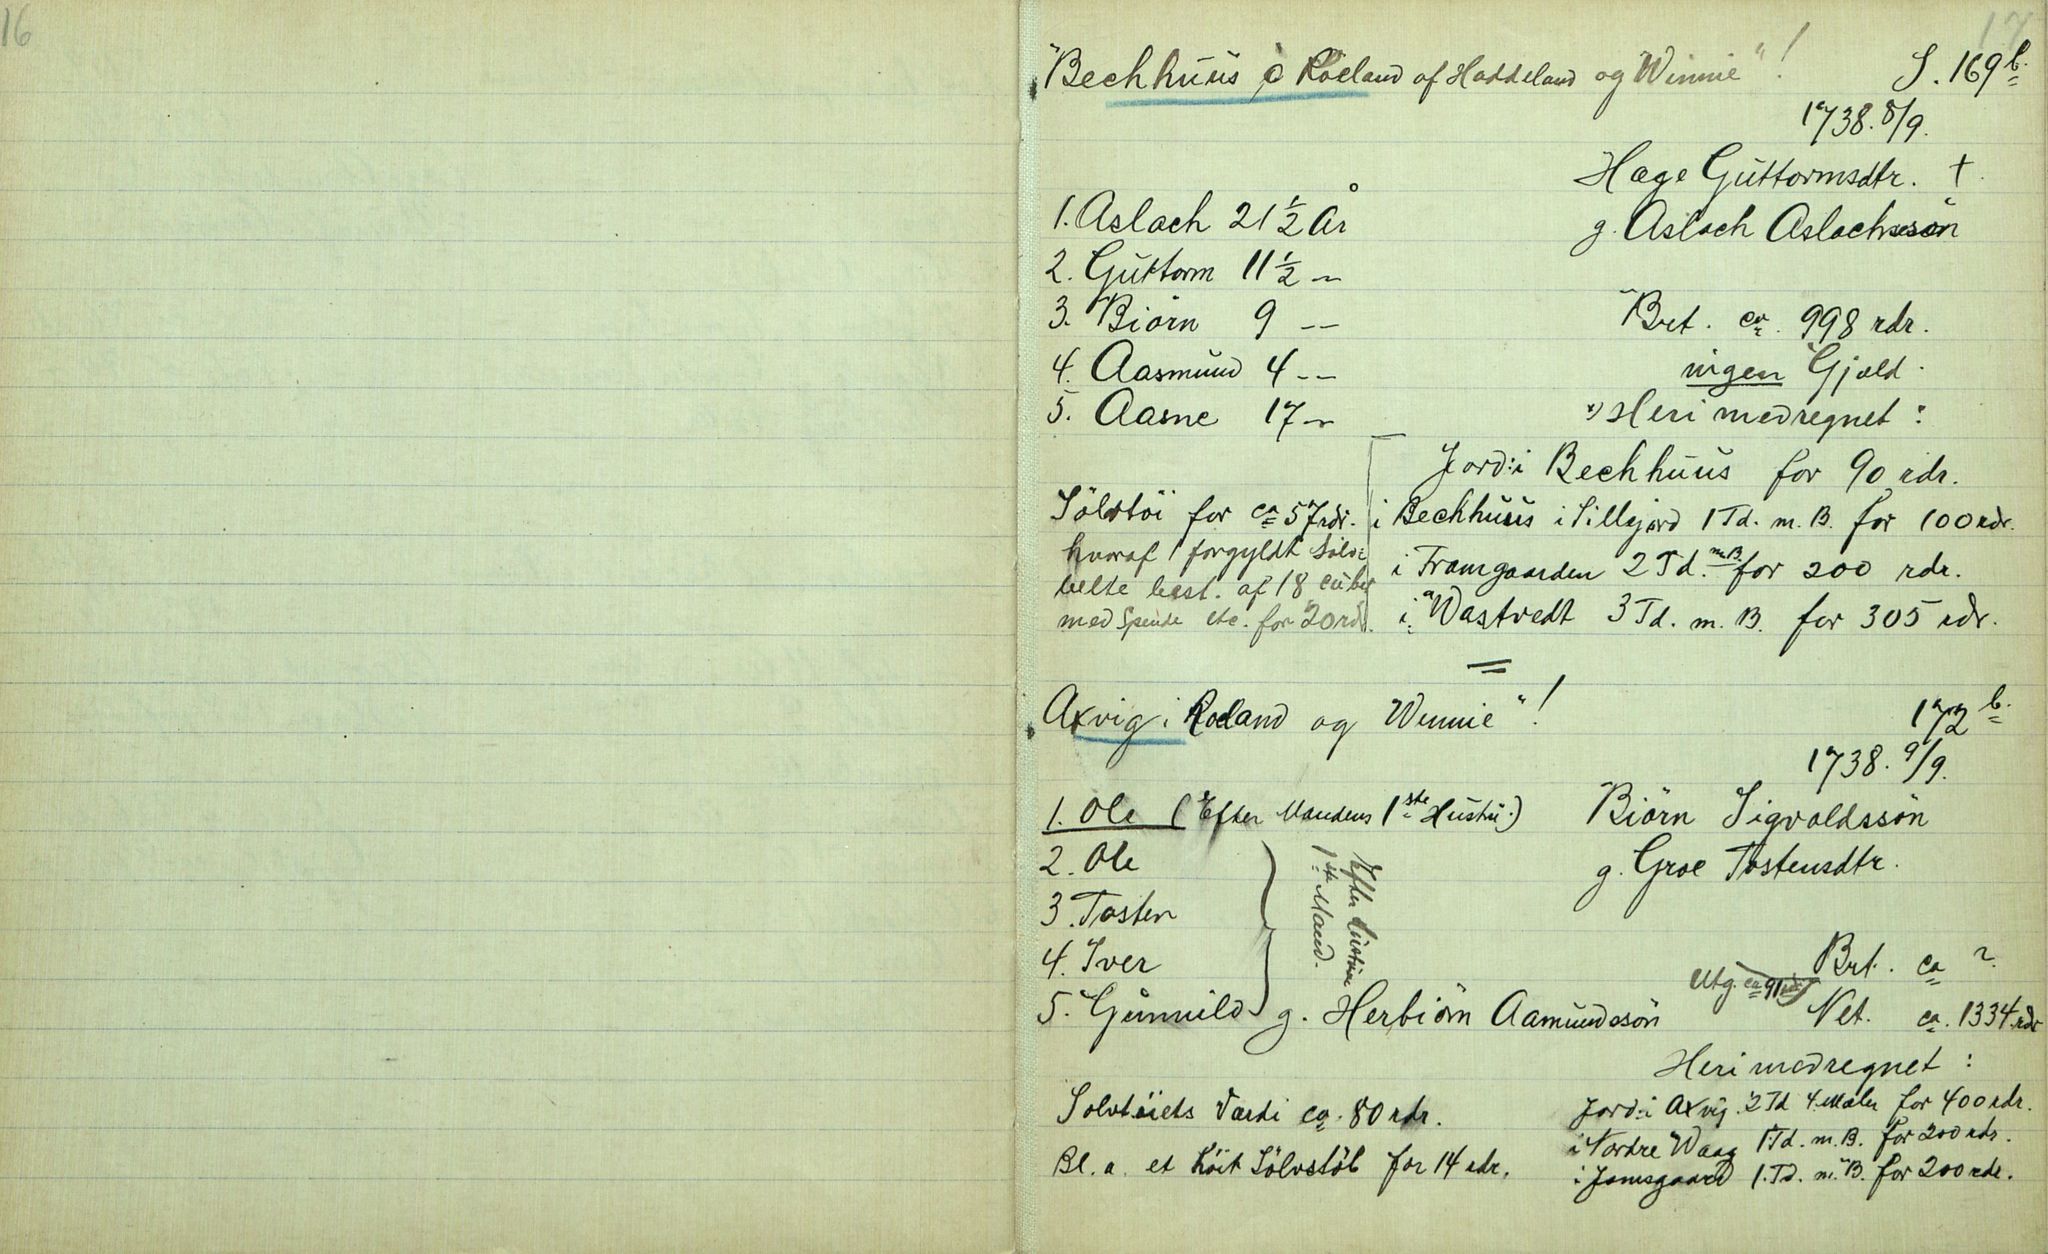 16
17
"Bechhuus i Roeland af Haddeland og Winnie"! S. 169 b.
1738. 8/9.
Hæge Guttormsdtr. †.
1. Aslach 21 1/2 År g. Aslach Aslachssön
2. Guttorm 11 1/2 —
3. Biörn 9 — Brt. ca. 998 rdr.
4. Aasmund 4 — ingen Gjæld.
5. Aasne 17 — x) Heri medregnet:
Jord: i Bechhuus for 90 rdr.
i Bechhuus i Sillejord 1 Td. m. B. for 100 rdr.
i Framgaarden 2 Td. m. B. for 200 rdr.
i Wastvedt 3 Td. m. B. for 305 rdr.
Sölvtöi for ca 57 rdr.
hvoraf 1 forgyldt Sölv=
belte best. af 18
med Spende etc. for 20 rdr.
Axvig i Roeland og Winnie"! 172 b.
1738. 9/9.
1. Ole (Efter Mandens 1ste Hustru.) Biörn Sigvaldssön
2. Ole g. Groe Tostensdtr.
3. Tosten
4. Iver
5. Gunnild g. Herbiörn Aamundssön
Efter hustruens
1ste Mand.
Brt. ca ?
Utg. ca 91 rdr
Net. ca. 1334 rdr
Heri medregnet:
Jord: i Axvig 2 Td 4 Mæler for 400 rdr.
i Nordre Waag 1 Td. m. B. for 200 rdr.
i Jamsgaard 1. Td. m. B. for 200 rdr.
Sölvtöiets Værdi ca. 80 rdr.
Bl. a. et höit Sölvstöb for 14 rdr.